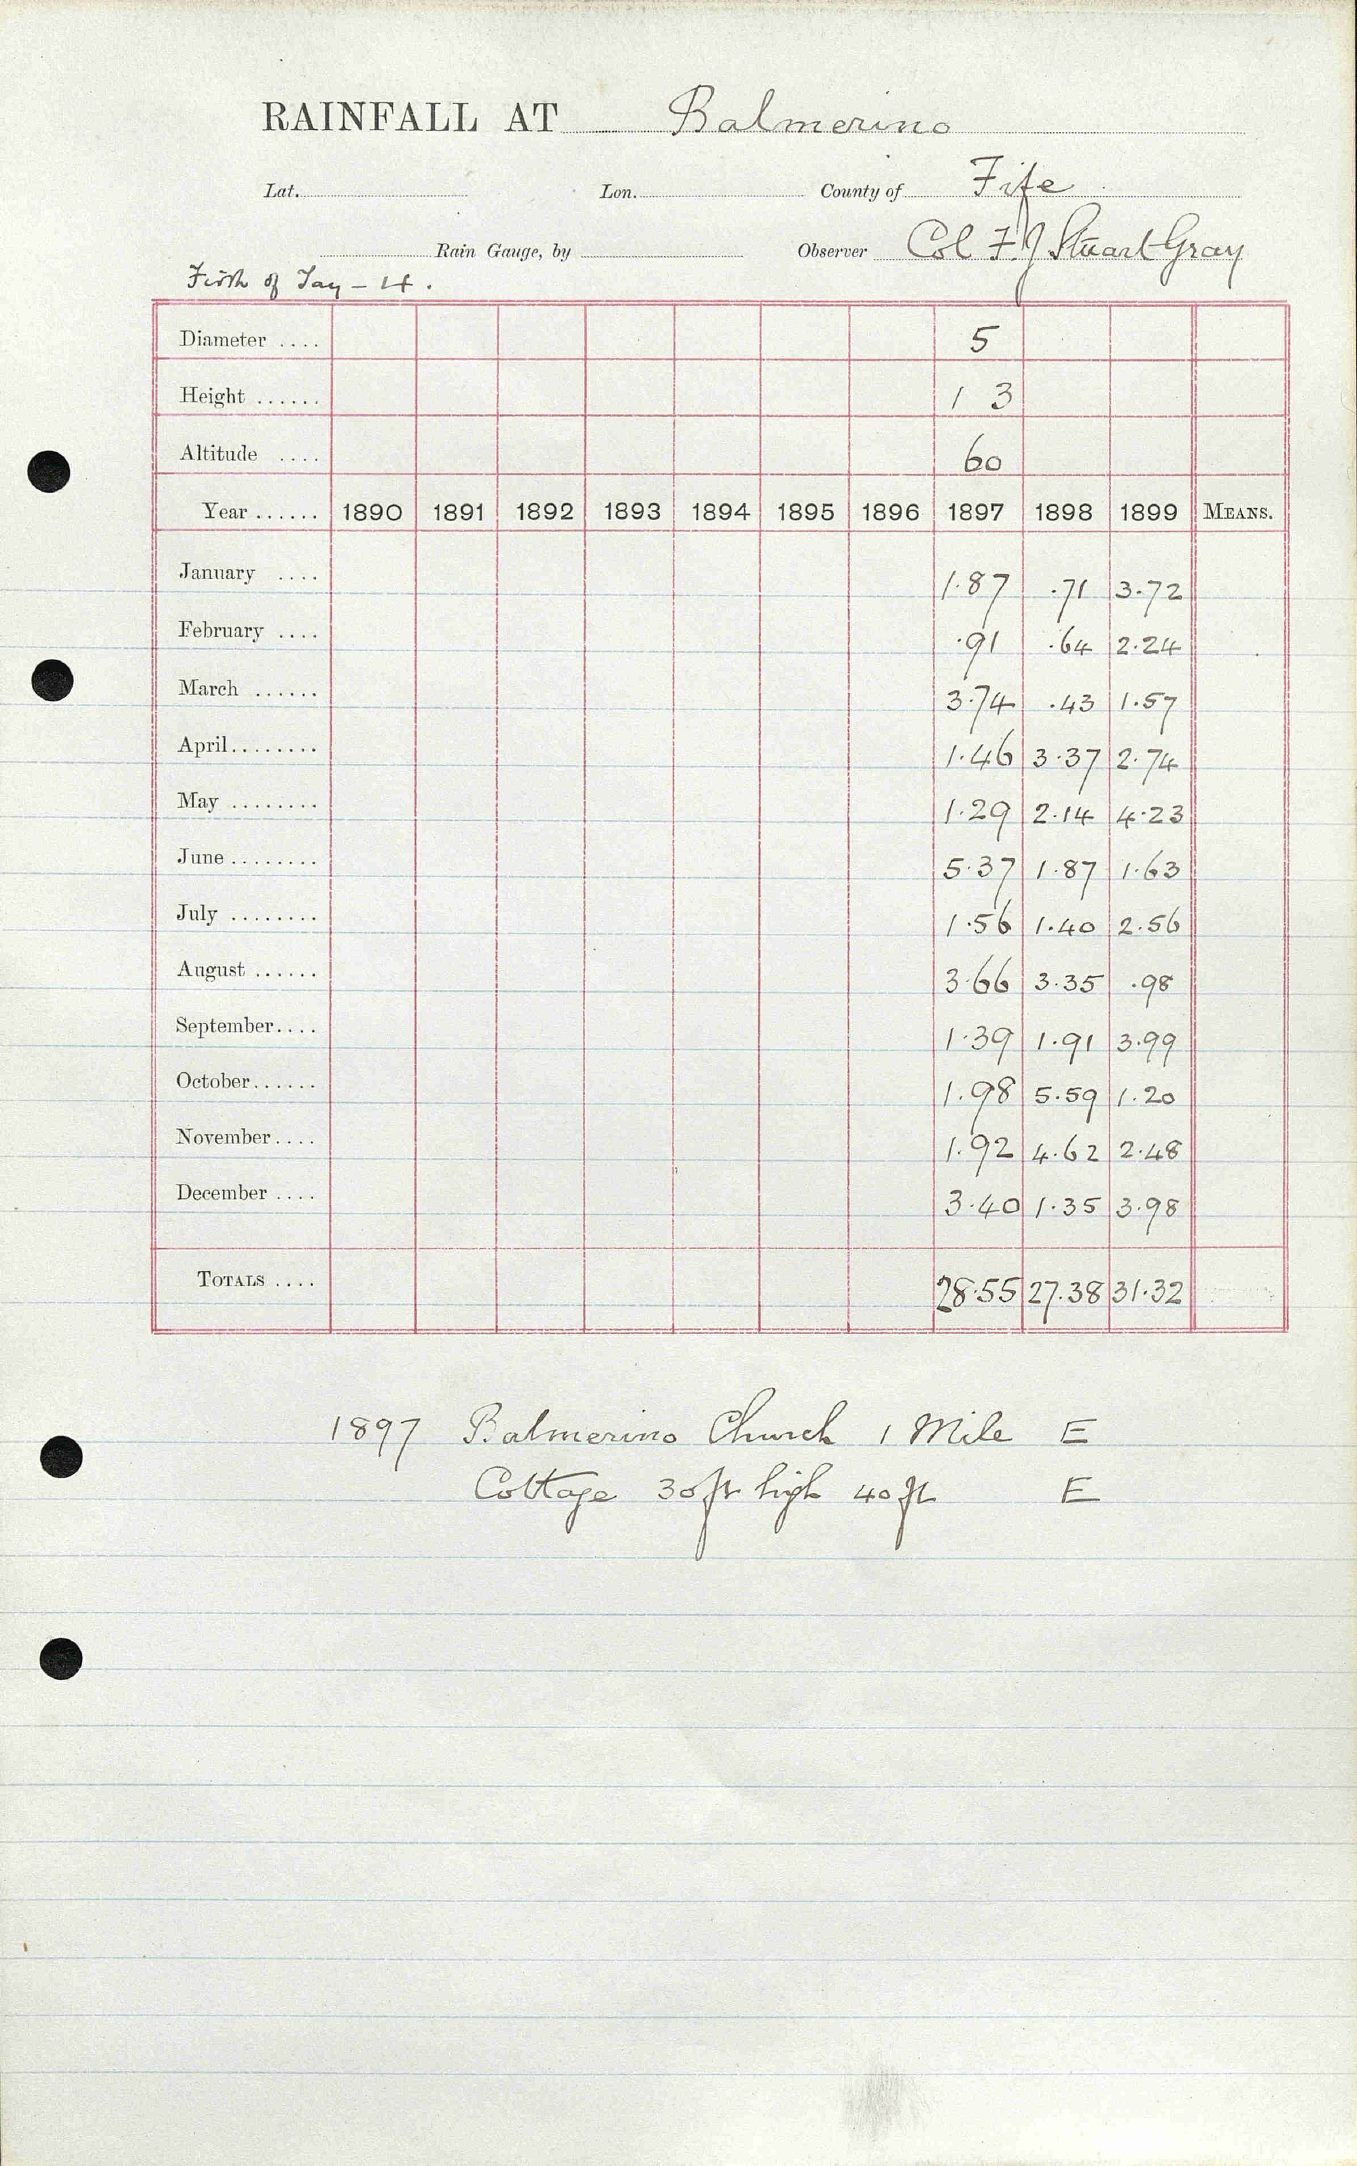 RAINFALL AT Balmerino
Lat. Lon. County of Fife
Rain Gauge, by Observer Col F. J Stuart Gray
Firth of Tay - 14.
Diameter .... 5
Height ...... 1 3
Altitude .... 60
Year ...... 1890 1891 1892 1893 1894 1895 1896 1897 1898 1899 MEANS.
January .... 1.87 .71 3.72
February .... .91 .64 2.24
March ...... 3.74 .43 1.57
April........ 1.46 3.37 2.74
May ........ 1.29 2.14 4.23
June ........ 5.37 1.87 1.63
July ........ 1.56 1.40 2.56
August ...... 3.66 3.35 .98
September.... 1.39 1.91 3.99
October...... 1.98 5.59 1.20
November.... 1.92 4.62 2.48
December .... 3.40 1.35 3.98
TOTALS .... 28.55 27.38 31.32
1897 Balmerino Church 1 Mile E
Cottage 30 ft high 40 ft E